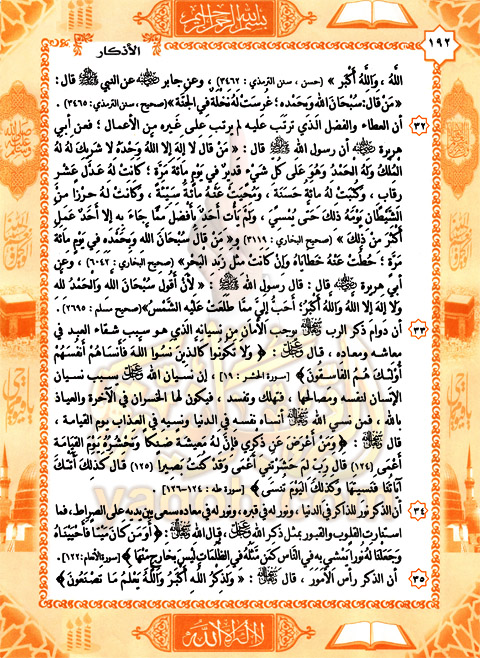 بسم الله الرحمن الرحيم
١٩٢
الأذكار
اللَّهُ ، وَاللَّهُ أَكْبَر » (حسن ، سنن الترمذي : ٣٤٦٢) ، وعن جابر ﷺ عن النبي ﷺ قال :
« مَنْ قال : سُبْحَانَ الله وَبحَمْده ؛ غُرسَتْ لَهُ نَخْلَة في الجنَّة » (صحيح ، سنن الترمذي : ٣٤٦٥) .
٣٢ أن العطاء والفضل الذي ترتب عليه لم يرتب على غيره من الأعمال ؛ فعن أبي
هريرة أن رسول الله ﷺ قال : « مَنْ قال لا إلهَ إلا اللهُ وَحْدَهُ لا شَريكَ لَهُ لَهُ
المُلْكُ وَلَهُ الحَمْدُ وَهُوَ عَلَى كُلِّ شَيْء قَديرٌ في يَوْم مائَةَ مَرَّة ؛ كَانَتْ لَهُ عَدْلَ عَشْر
رقاب ، وَكُتبَتْ لَهُ مائةُ حَسَنَة ، وَمُحيَتْ عَنْهُ مائةُ سَيِّئَة ، وَكَانَتْ لَهُ حرْزًا منَ
الشَّيْطَان يَوْمَهُ ذَلكَ حَتَّى يُمْسيَ ، وَلَمْ يَأْت أَحَدٌ بأَفْضَلَ ممَّا جَاءَ به إلا أَحَدٌ عَملَ
أَكْثَرَ مَنْ ذَلكَ » (صحيح البخاري : ٣١١٩) و« مَن قالَ سُبْحَانَ الله وَبحَمْده في يَوْم مائَةَ
مَرَّة ؛ حُطَّتْ عَنْهُ خَطَايَاهُ وَإنْ كَانَتْ مثْلَ زَبَد البَحْر » (صحيح البخاري : ٦٠٤٢) ، وعن
أبي هريرة ﷺ قال : قال رسول الله ﷺ : « لأَنْ أَقُولَ سُبْحَانَ الله وَالحَمْدُ لله
وَلا إلَهَ إلا اللهُ وَاللهُ أَكْبَرُ ؛ أَحَبُّ إلَيَّ ممَّا طَلَعَتْ عَلَيه الشَّمْسُ » (صحيح مسلم : ٢٦٩٥) .
٣٣ أن دوام ذكر الرب ﷻ يوجب الأمان من نسيانه الذي هو سبب شقاء العبد في
معاشه ومعاده ، قال ﷻ : ﴿ وَلا تَكُونُوا كَالذينَ نَسُوا اللهَ فَأَنسَاهُمْ أَنْفُسَهُمْ
أُولَئكَ هُمُ الفَاسقُونَ ﴾ [سورة الحشر : ١٩] ، إن نسيان الله ﷻ سبب نسيان
الإنسان لنفسه ومصالحها ، فتهلك وتفسد ، فيكون لها الخسران في الآخرة والعياذ
بالله ، فمن نسي الله ﷻ أنساه نفسه في الدنيا ونسيه في العذاب يوم القيامة ،
قال ﷻ : ﴿ وَمَنْ أَعْرَضَ عَن ذكْري فَإنَّ لَهُ مَعيشَةً ضَنكًا وَنَحْشُرُهُ يَوْمَ القيَامَة
أَعْمَى (١٢٤) قَالَ رَبِّ لمَ حَشَرْتَني أَعْمَى وَقَدْ كُنتُ بَصيرًا (١٢٥) قَالَ كَذَلكَ أَتَتْكَ
آيَاتُنَا فَنَسيتَهَا وَكَذَلكَ اليَوْمَ تُنسَى ﴾ [سورة طه : ١٢٤-١٢٦] .
٣٤ أن الذكر نور للذاكر في الدنيا ، ونور له في قبره ، ونور له في معاده يسعى بين يديه على الصراط ، فما
استنارت القلوب والقبور بمثل ذكر الله ﷻ ، قال الله ﷻ : ﴿ أَوَمَن كَانَ مَيْتًا فَأَحْيَيْنَاهُ
وَجَعَلْنَا لَهُ نُورًا يَمْشي به في النَّاس كَمَن مَّثَلُهُ في الظُّلُمَات لَيْسَ بخَارج مِّنْهَا ﴾ [سورة الأنعام : ١٢٢] .
٣٥ أن الذكر رأس الأمور ، قال ﷻ : ﴿ وَلَذكْرُ اللَّه أَكْبَرُ وَاللَّهُ يَعْلَمُ مَا تَصْنَعُونَ ﴾
لا إله إلا الله